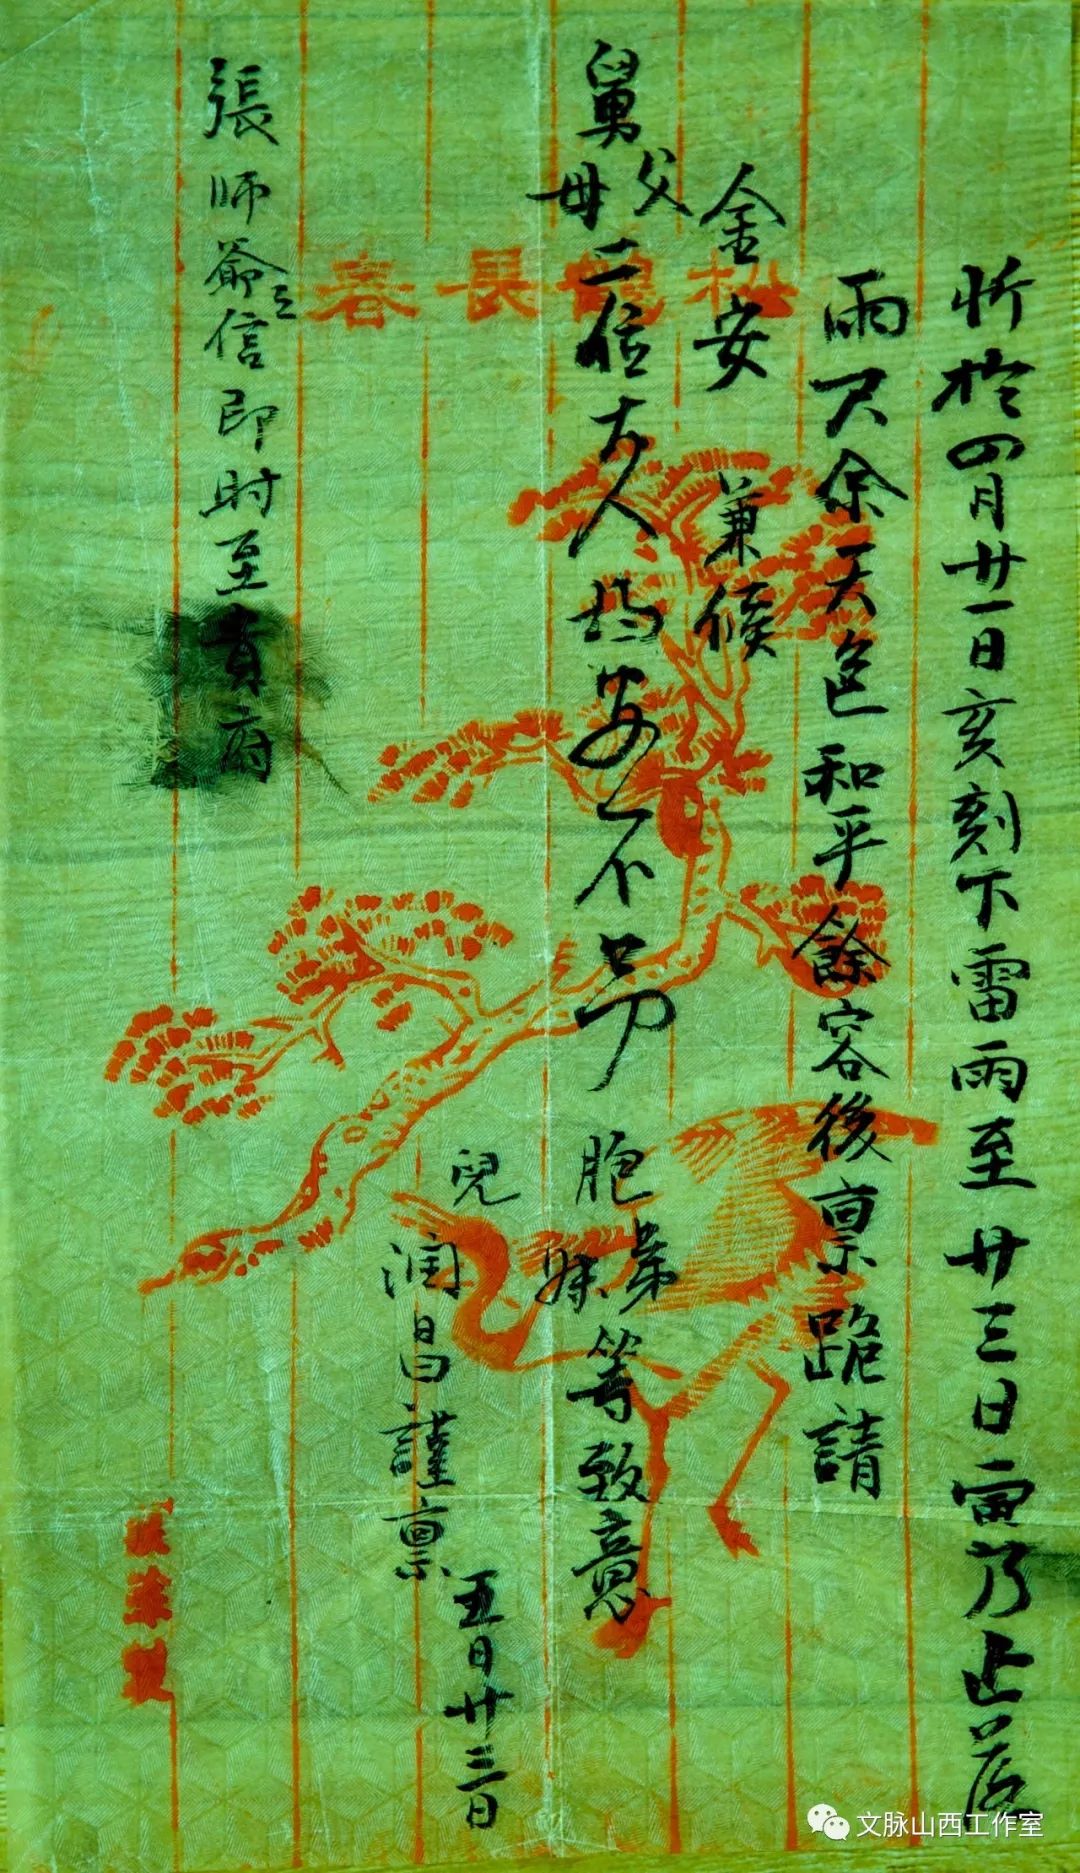 忻於四月廿一日亥刻下雷雨至廿三日寅乃止落
雨尺余天色和平餘容後禀跪請
金安 兼候
舅父母二位大人均安不另 胞弟妹等致意
兒润昌謹禀
五月廿三日
張师爺之信即时至貴府
松鶴長春
文脉山西工作室